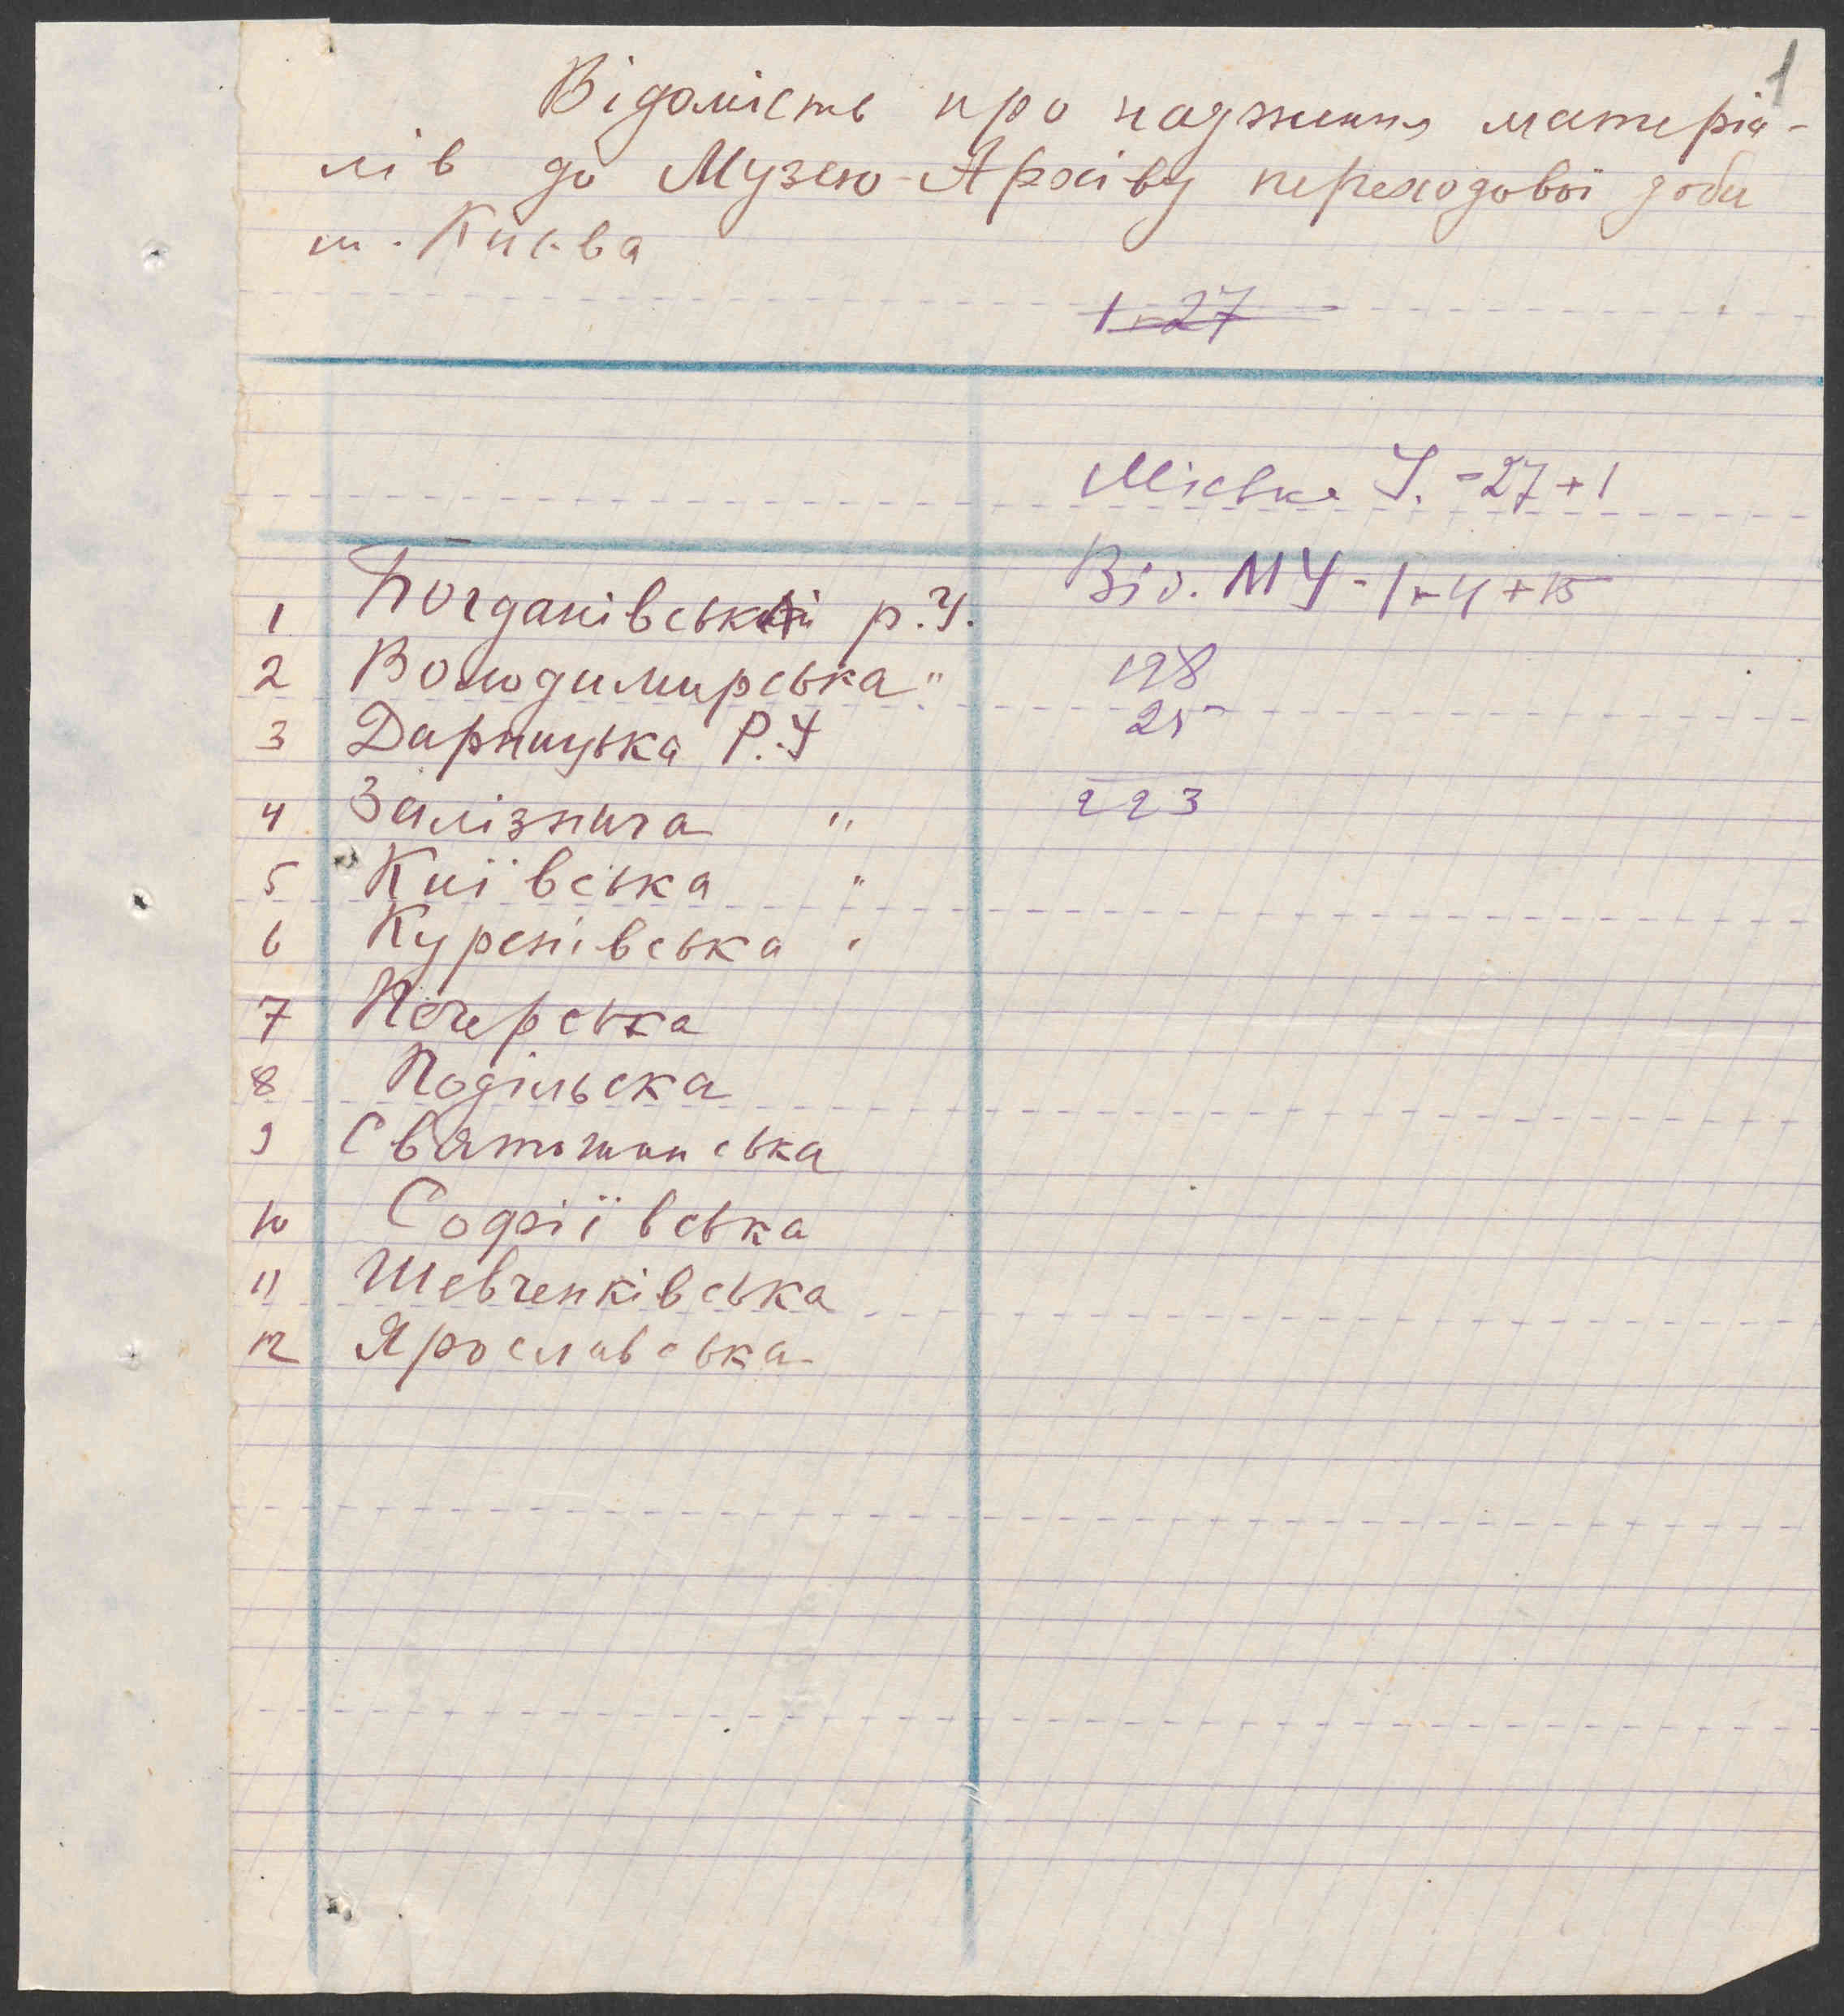 1
Відомість про надження матерія-
лів до Музею-Архіву переходової доби
м. Києва
1-27
Міська У. -27+1
Від. МУ - 1+4+15
1 Богданівській р.У.
2 Володимирська " 198
3 Дарницька Р.У 25
4 Залізнича " 223
5 Київська "
6 Куренівська "
7 Печерська
8 Подільска
9 Святошинська
10 Софіївська
11 Шевченківська
12 Ярославська